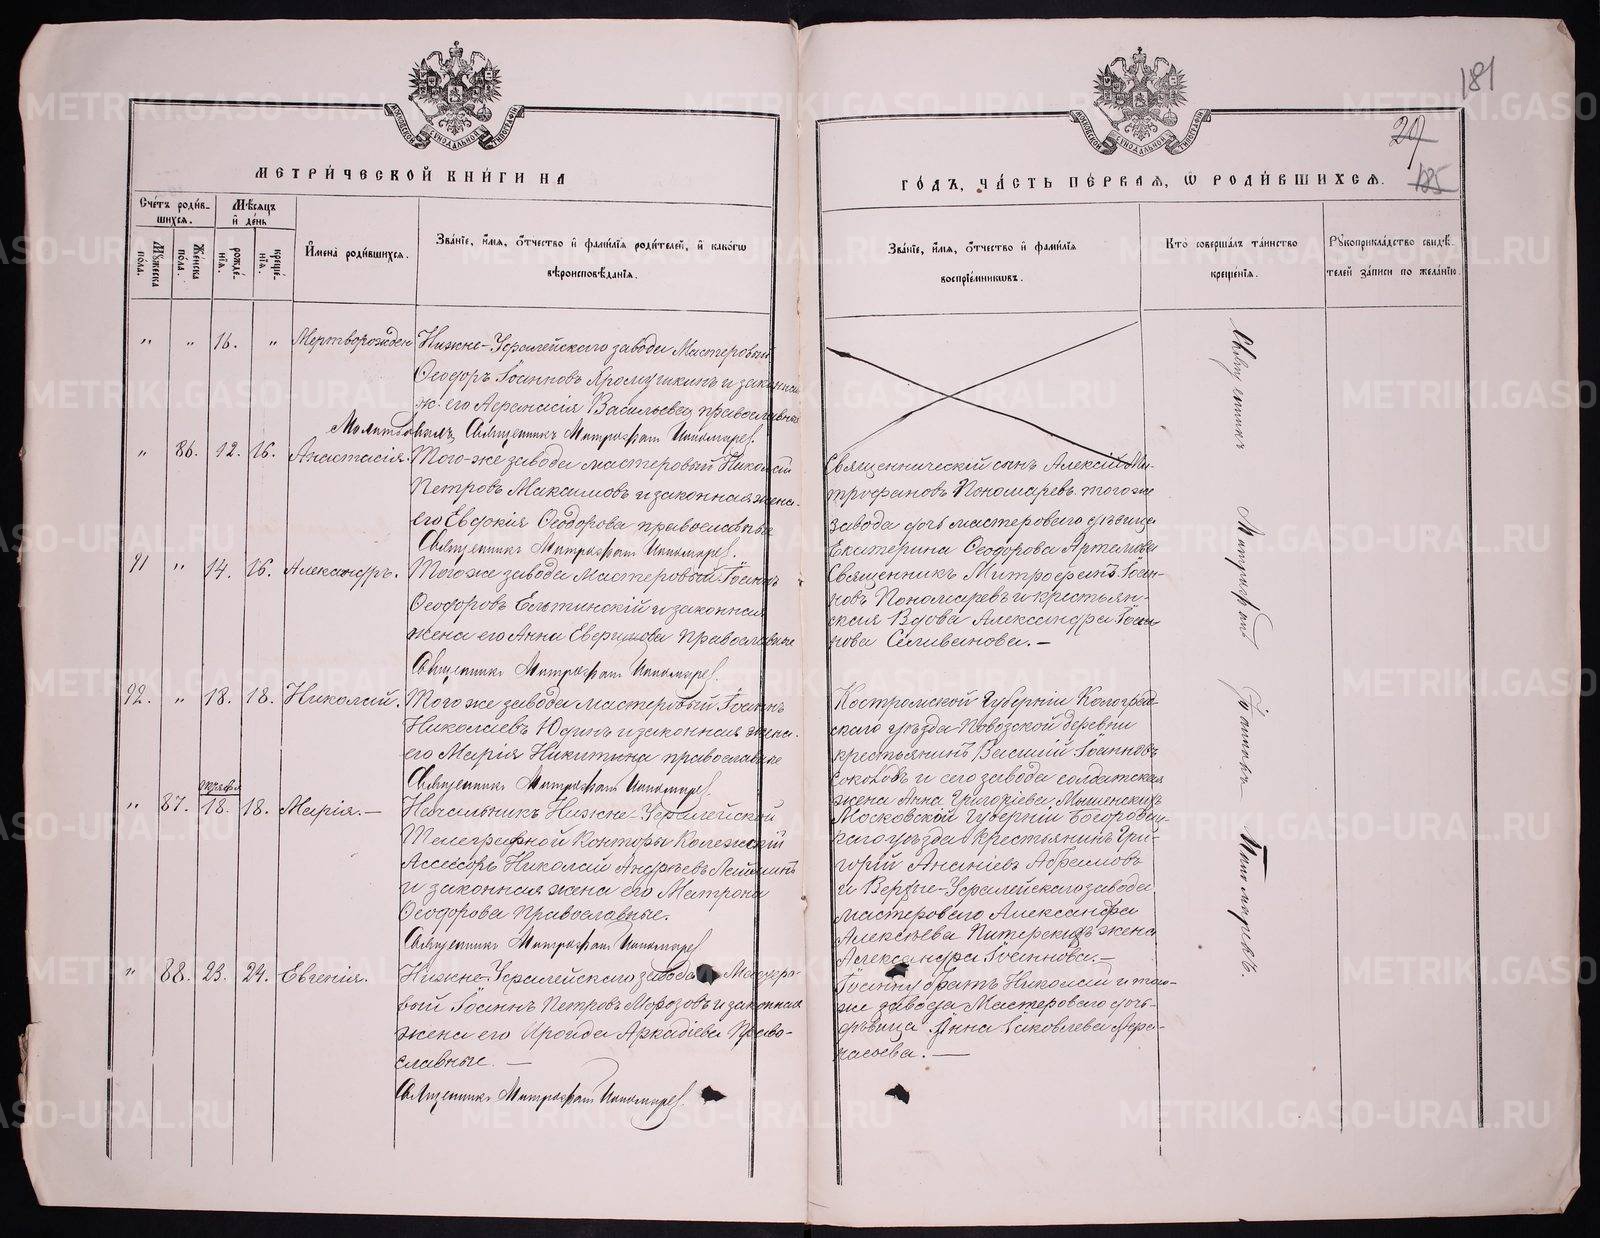 181
29
185
МЕТРИ́ЧЕСКОЙ КНИ́ГИ НА
ГО́ДЪ, ЧА́СТЬ ПЕ́РВАЯ, Ѡ РОДИ́ВШИХСЯ.
Сче́тъ роди́в-
шихся.
Мѣсяцъ
и де́нь
Мꙋжеска
пола.
Же́нска
пола.
рожде́-
нїя.
креще́-
нїя.
И҆мена̀ роди́вшихся.
Зва́нїе, и҆́мя, ѻ҆́тчество и҆ фамѝлїя роди́телей, и҆ како́гѡ
вѣроисповѣ́данїя.
Зва́нїе, и҆́мя, ѻ҆́тчество и҆ фамѝлїя
воспрїе́мникѡвъ.
Кто̀ соверша́лъ та́инство
креще́нїя.
Рꙋкоприкла́дство свидѣ́-
телей за́писи по жела́нїю.
" " 16. " Мертворожден Нижне-Уфалейскаго завода Мастеровый
Ѳеодоръ Іоанновъ Хромушкинъ и законная
ж. его Аѳанасія Васильева, православные
Молитвовалъ Священникъ Митрофанъ Пономаревъ.
" 86. 12. 16. Анастасія. Того-же завода мастеровый Николай
Петровъ Максимовъ и законная жена
его Евдокія Ѳеодорова православные
Священникъ Митрофанъ Пономаревъ.
Священническій сынъ Алексій Ми-
трофановъ Пономаревъ. того же
завода дочь мастероваго дѣвица
Екатерина Ѳеодорова Артемова
91 " 14. 16. Александръ. Того же завода Мастеровый Іоаннъ
Ѳеодоровъ Ельтинскій и законная
жена его Анна Евфимова Православные
Священникъ Митрофанъ Пономаревъ.
Священникъ Митрофанъ Іоан-
новъ Пономаревъ и крестьян-
ская Вдова Александра Іоан-
нова Селиванова.—
92. " 18. 18. Николай. Того же завода мастеровый Іоаннъ
Николаевъ Юдинъ и законная жена
его Марія Никитина православные
Священникъ Митрофанъ Пономаревъ.
Костромской Губерніи Кологрив-
скаго уѣзда деревни
крестьянинъ Василій Іоанновъ
Соколовъ и сего завода солдатская
жена Анна Григоріева Мышенскихъ
" 87. 18. 18. Марія.— Начальникъ Нижне-Уфалейской
Телеграфной Конторы Колежскій
Ассесоръ Николай Андреевъ
и законная жена его Матрона
Ѳеодорова Православные.
Священникъ Митрофанъ Пономаревъ
Московской Губерніи Богородиц-
каго уѣзда крестьянинъ Гри-
горій Ананіевъ Абрамовъ
и Верхне-Уфалейскаго завода
мастероваго Александра
Алексѣева Питерскихъ жена
Александра Іоаннова.—
" 88. 23. 24. Евгенія. Нижне-Уфалейскаго завода Мастеро-
вый Іоаннъ Петровъ Морозовъ и законная
жена его Ироида Аркадіева Право-
славные.—
Священникъ Митрофанъ Пономаревъ.
Іоанну братъ Николай и того-
же завода Мастероваго дочь-
дѣвица Анна Іаковлева Афа-
насьева.—
Священникъ Митрофанъ Іоанновъ Пономаревъ.